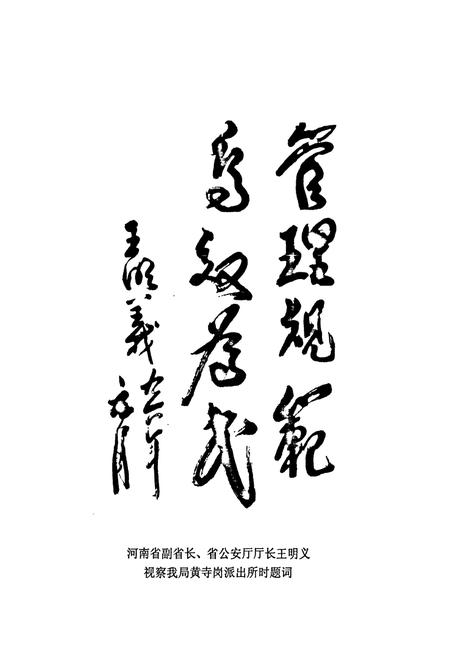 管理規範
高效為民
王明義
河南省副省长、省公安厅厅长王明义
视察我局黄寺岗派出所时题词